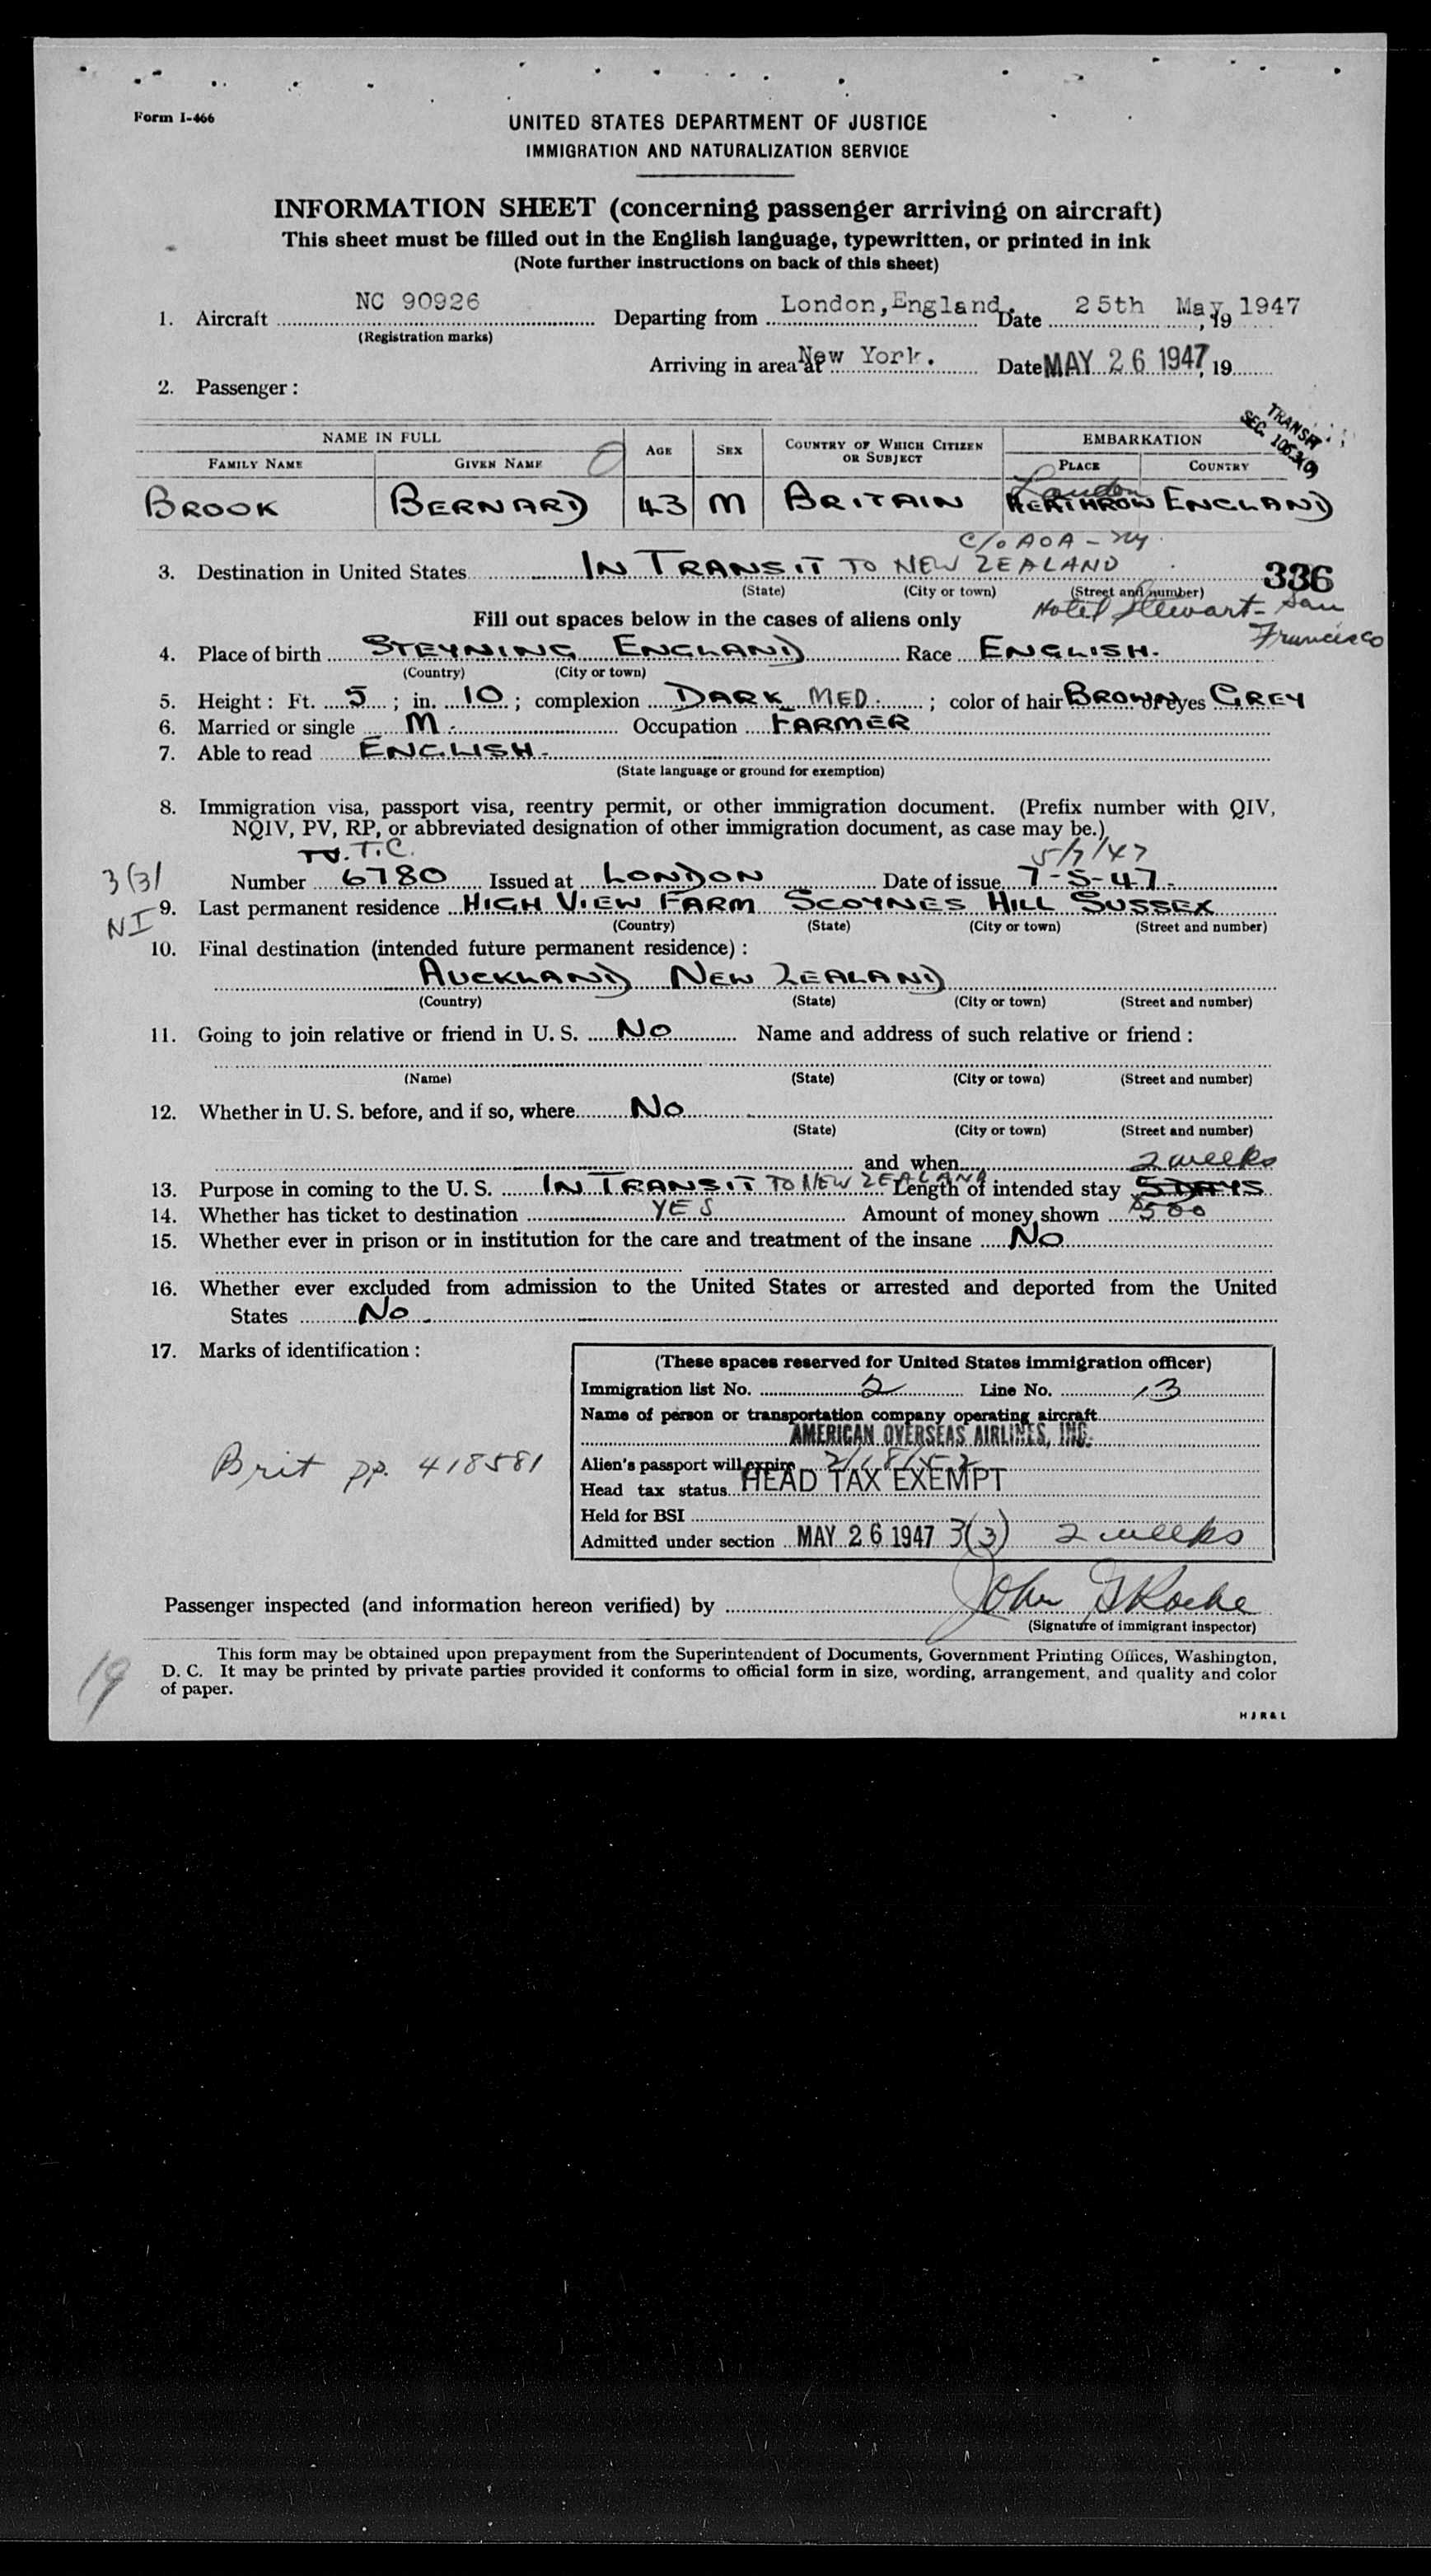 Form I-466
UNITED STATES DEPARTMENT OF JUSTICE
IMMIGRATION AND NATURALIZATION SERVICE
INFORMATION SHEET (concerning passenger arriving on aircraft)
This sheet must be filled out in the English language, typewritten, or printed in ink
(Note further instructions on back of this sheet)
1. Aircraft NC 90926 Departing from London, England. Date 25th May, 19 1947
(Registration marks)
Arriving in area at New York. Date MAY 26 1947, 19
2. Passenger:
TRANSIT
SEC.
NAME IN FULL AGE SEX COUNTRY OF WHICH CITIZEN OR SUBJECT EMBARKATION
FAMILY NAME GIVEN NAME PLACE COUNTRY
London
BROOK BERNARD 43 M BRITAIN HEATHROW ENGLAND
C/o AOA - NY
3. Destination in United States IN TRANSIT TO NEW ZEALAND 336
(State) (City or town) (Street and number)
Hotel Stewart - San Francisco
Fill out spaces below in the cases of aliens only
4. Place of birth STEYNING ENGLAND Race ENGLISH.
(Country) (City or town)
5. Height: Ft. 5; in. 10; complexion DARK MED.; color of hair BROWN of eyes GREY
6. Married or single M. Occupation FARMER
7. Able to read ENGLISH.
(State language or ground for exemption)
8. Immigration visa, passport visa, reentry permit, or other immigration document. (Prefix number with QIV,
NQIV, PV, RP, or abbreviated designation of other immigration document, as case may be.)
T.C. 5/7/47
3(3)
Number 6780 Issued at LONDON Date of issue 7-5-47-
NI
9. Last permanent residence HIGH VIEW FARM SCOYNES HILL SUSSEX
(Country) (State) (City or town) (Street and number)
10. Final destination (intended future permanent residence):
AUCKLAND NEW ZEALAND
(Country) (State) (City or town) (Street and number)
11. Going to join relative or friend in U. S. NO Name and address of such relative or friend:
(Name) (State) (City or town) (Street and number)
12. Whether in U. S. before, and if so, where NO
(State) (City or town) (Street and number)
and when
2 weeks
13. Purpose in coming to the U. S. IN TRANSIT TO NEW ZEALAND Length of intended stay 5 DAYS
14. Whether has ticket to destination YES Amount of money shown $500
15. Whether ever in prison or in institution for the care and treatment of the insane NO
16. Whether ever excluded from admission to the United States or arrested and deported from the United
States NO.
17. Marks of identification:
Brit pp. 418581
(These spaces reserved for United States immigration officer)
Immigration list No. 2 Line No. 13
Name of person or transportation company operating aircraft
AMERICAN OVERSEAS AIRLINES, INC.
Alien's passport will expire 2/18/52
Head tax status HEAD TAX EXEMPT
Held for BSI
Admitted under section MAY 26 1947 3(3) 2 weeks
Passenger inspected (and information hereon verified) by John G Roche
(Signature of immigrant inspector)
This form may be obtained upon prepayment from the Superintendent of Documents, Government Printing Offices, Washington,
D. C. It may be printed by private parties provided it conforms to official form in size, wording, arrangement, and quality and color
of paper.
19
H J R & L